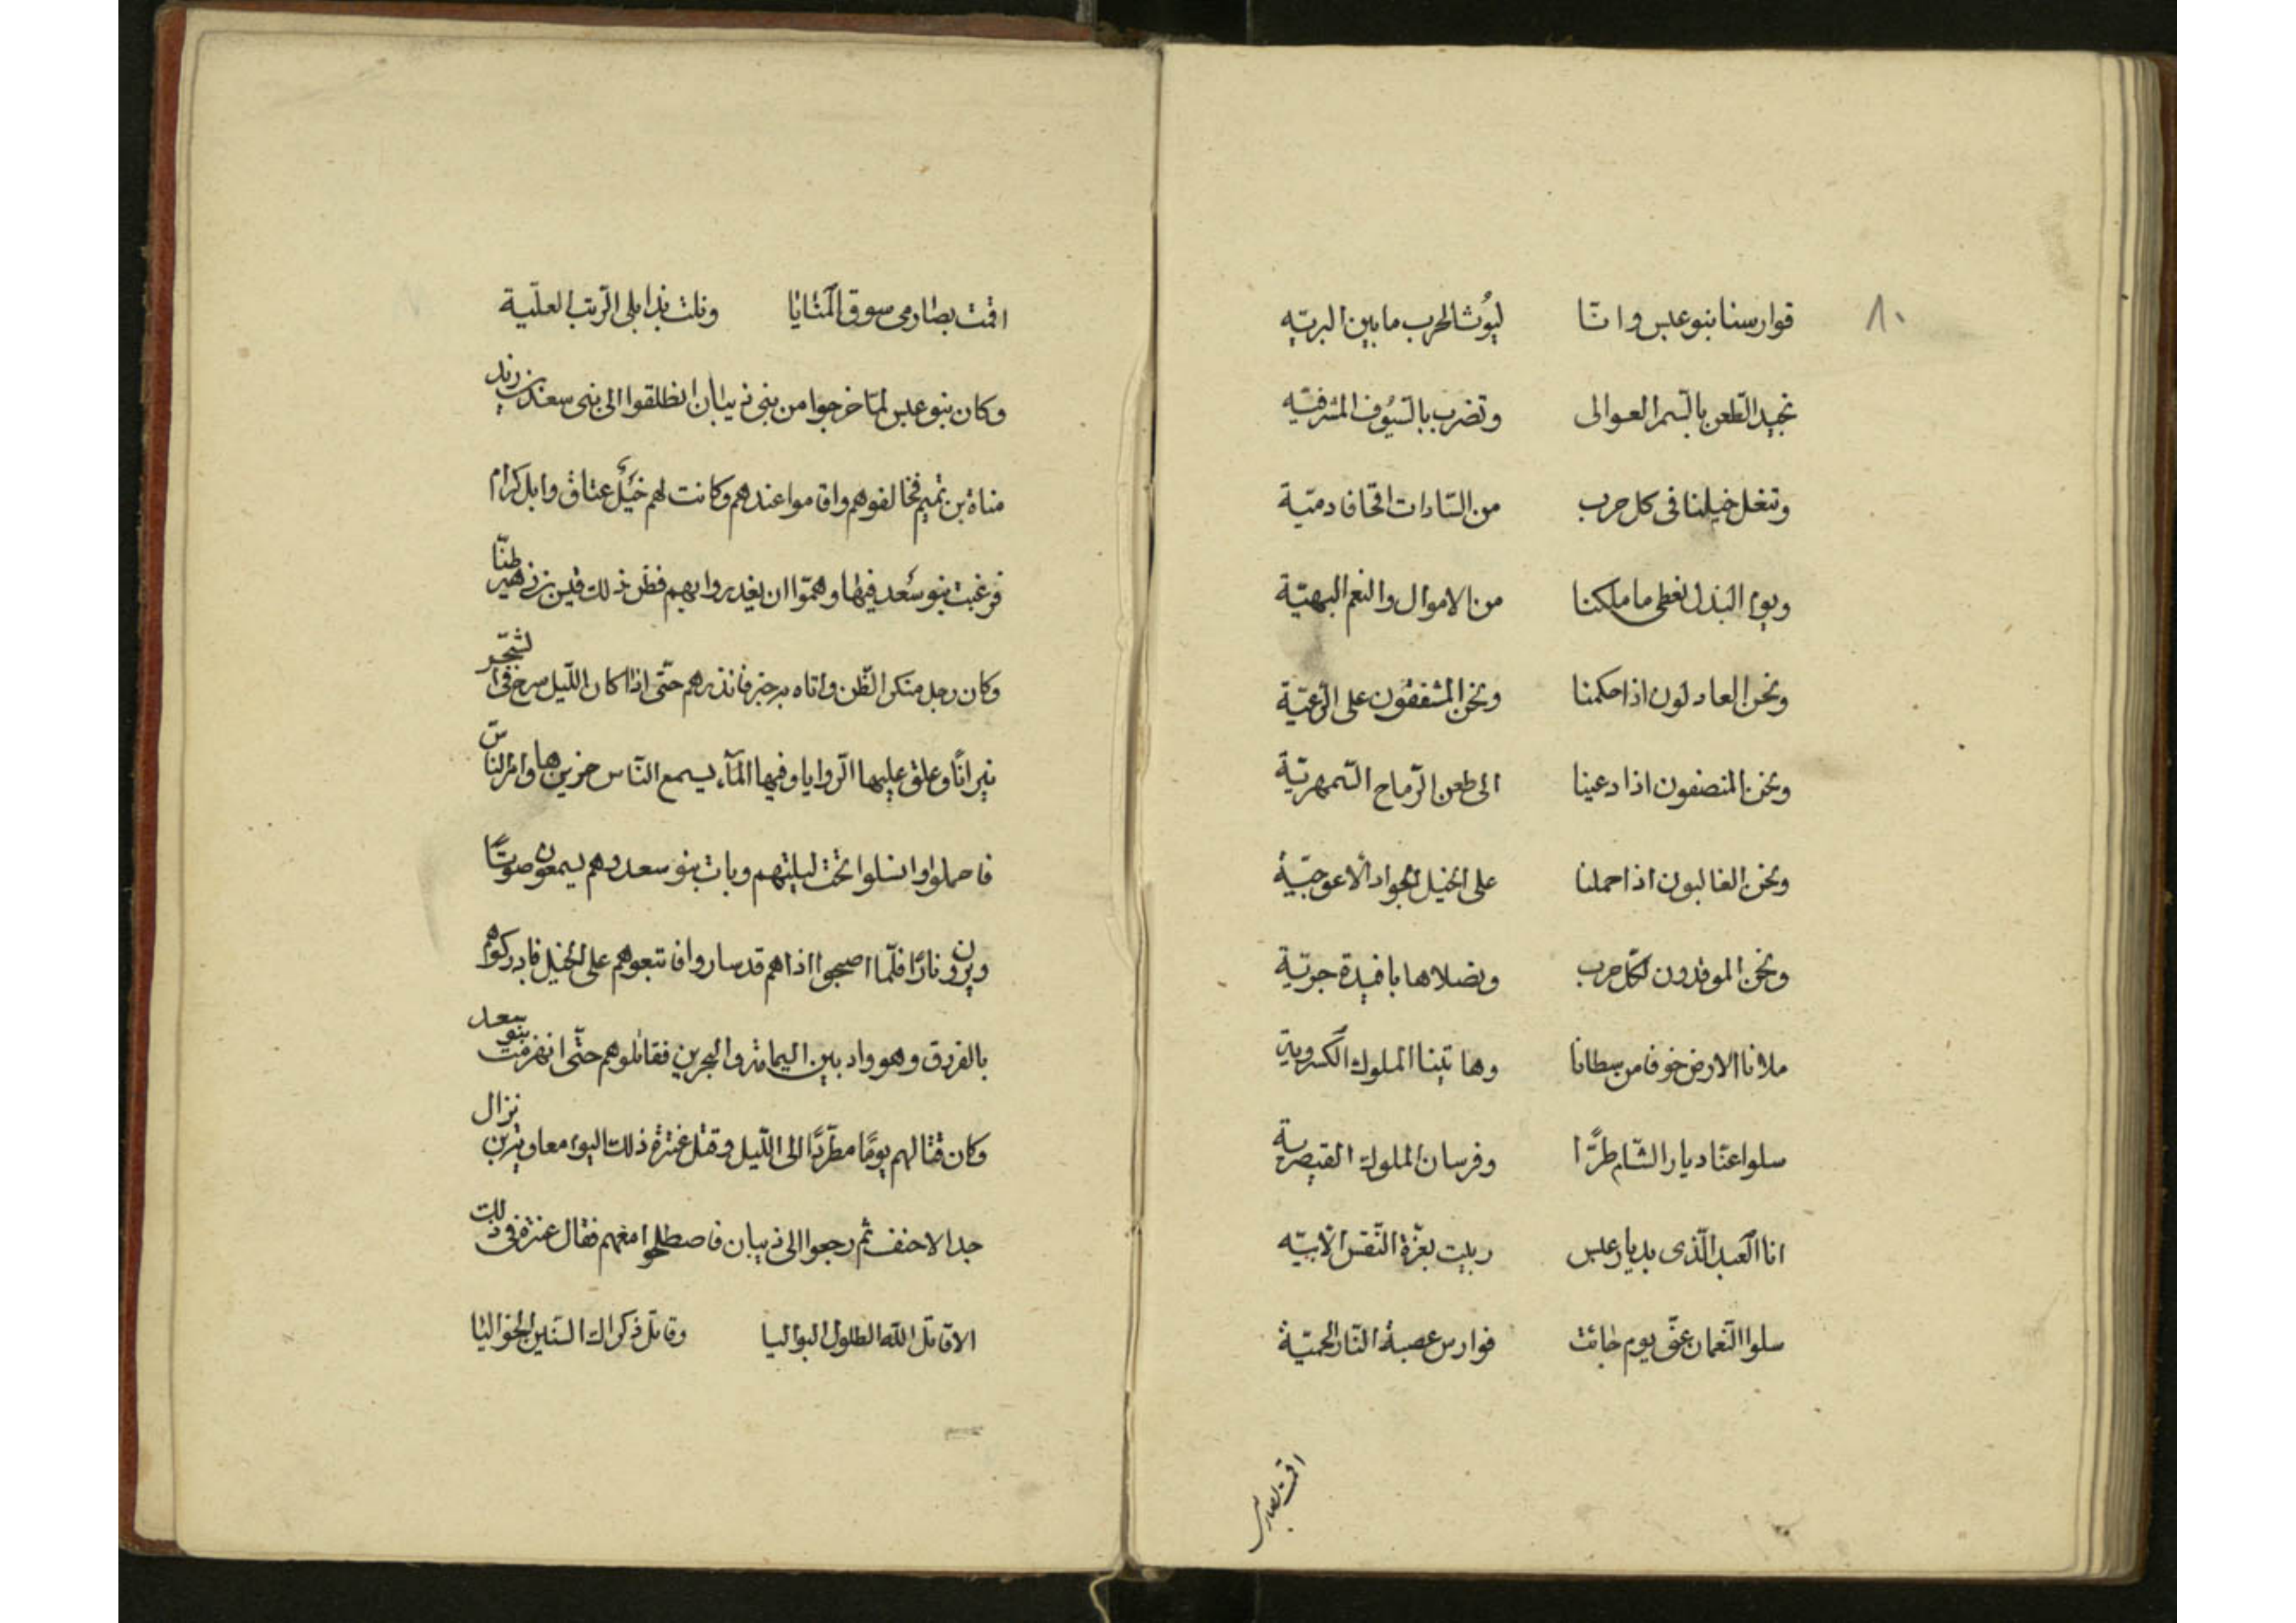 ٨٠
فوارسنا بنو عبس وانّا ليُوث الحرب ما بين البريّه
نجيد الطّعن بالسّمر العوالى وتضرب بالسّيُوف المشرفيّه
وتنعل خيلنا فى كل حرب من السّادات اقحافا دميّة
ويوم البذل نعطى ما ملكنا من الاموال والنعم البهيّة
ونحن العادلون اذا حكمنا ونحن المشفقون على الرّعيّة
ونحن المنصفون اذا دعينا الى طعن الرّماح السّمهريّة
ونحن الغالبون اذا حملنا على الخيل الجواد الاعوجيّة
ونحن الموقدون لكلّ حرب ونصلاها بافيدة جريّة
ملانا الارض خوفا من سطانا وهابتنا الملوك الكسرويّة
سلوا عنّا ديار الشّام طرًّا وفرسان الملوك القيصريّة
انا العبد الّذى بديار عبس ربيت بعزّة النّفس الابيّه
سلوا النّعمان عنّى يوم جائت فوارس عصبة النّار الحميّة
اقمت بصارمى
اقمت بصارمى سوق المنايا ونلت بذابلى الرّتب العليّة
وكان بنو عبس لمّا خرجوا من بنى ذبيان انطلقوا الى بنى سعد بن زيد
مناة بن تميم فخالفوهم واقاموا عندهم وكانت لهم خيل عتاق وابل كرام
فرغبت بنو سعد فيها وهمّوا ان يغدروا بهم فظن ذلك قيس بن زهير ظنّا
وكان رجل منكر الظّن واتاه به خبر فانذرهم حتّى اذا كان اللّيل سرج فى الشّجر
نيرانًا وعلق عليها الرّوايا وفيها المآء يسمع النّاس خريرها وامر النّاس
فاحملوا وانسلوا تحت ليلتهم وبات بنو سعد وهم يسمعون صوتًا
ويرون نارًا فلمّا اصبحوا اذا هم قد ساروا فاتبعوهم على الخيل فادركوهم
بالفروق وهو واد بين اليمامة والبحرين فقاتلوهم حتّى انهزمت بنو سعد
وكان قتالهم يومًا مطّردًا الى اللّيل وقتل عنترة ذلك اليوم معاوية بن نزال
جد الاحنف ثم رجعوا الى ذبيان فاصطلحوا معهم فقال عنترة فى ذلك
الا قاتل اللّه الطلول البواليا وقاتل ذكراك السّنين الخواليا